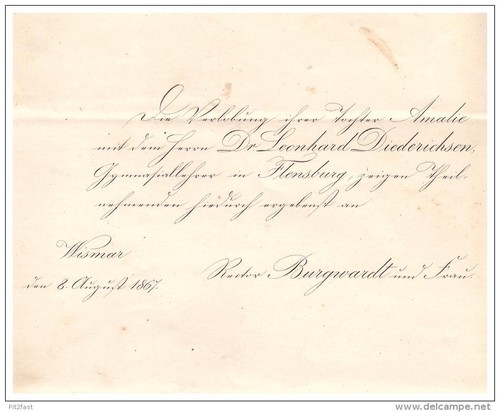 Die Verlobung ihrer Tochter Amalie
mit dem Herrn Dr. Leonhard Diederichsen,
Gymnasiallehrer in Flensburg, zeigen Theil-
nehmenden hiedurch ergebenst an
Wismar
den 8. August 1867.
Rector Burgwardt und Frau.
Pit2fast
© delcampe.net